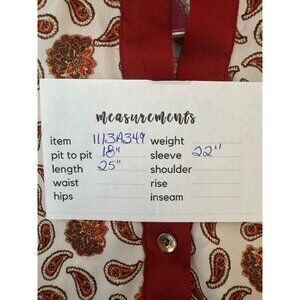 measurements
item 1113A349 weight
pit to pit 18" sleeve 22"
length 25" shoulder
waist rise
hips inseam